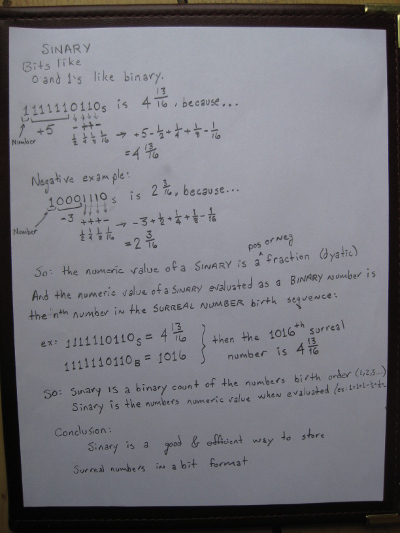 SINARY
Bits like
0 and 1's like binary.
1111110110s is 4 13/16, because...
Number +5 - + + -
1/2 1/4 1/8 1/16 → +5 - 1/2 + 1/4 + 1/8 - 1/16
= 4 13/16
Negative example:
10001110s is 2 3/16, because...
Number -3 + + + -
1/2 1/4 1/8 1/16 → -3 + 1/2 + 1/4 + 1/8 - 1/16
= 2 3/16
So: the numeric value of a SINARY is a pos or neg fraction (dyatic)
And the numeric value of a SINARY evaluated as a BINARY number is
the n'th number in the SURREAL NUMBER birth sequence:
ex: 1111110110s = 4 13/16 } then the 1016th surreal
1111110110B = 1016 number is 4 13/16
So: Sinary is a binary count of the numbers birth order (1,2,3...)
Sinary is the numbers numeric value when evaluated
Conclusion:
Sinary is a good & efficient way to store
Surreal numbers in a bit format